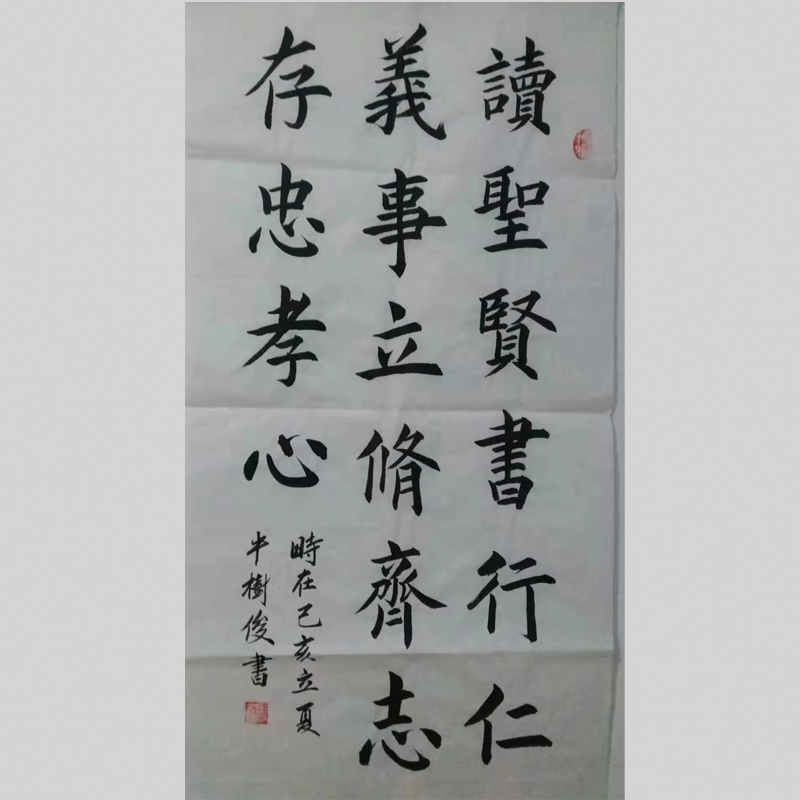 讀聖賢書行仁
義事立脩齊志
存忠孝心
時在己亥立夏
牛樹俊書